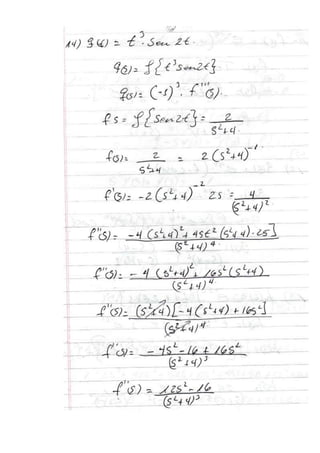 14) g(t) = t³. Sen 2t.
g(s) = ʃ{t³ sen2t}
g(s) = (-1)³. f'''(s).
f s = ʃ{Sen2t} = 2/(s²+4)
f(s) = 2/(s²+4) = 2(s²+4)⁻¹
f'(s) = -2(s²+4)⁻² 2s = 4/(s²+4)²
f''(s) = -4(s²+4)² + 4s[2(s²+4).2s]/(s²+4)⁴
f''(s) = -4(s²+4)² + 16s²(s²+4)/(s²+4)⁴
f''(s) = (s²+4)[-4(s²+4)+16s²]/(s²+4)⁴
f''(s) = -4s²-16+16s²/(s²+4)³
f''(s) = 12s²-16/(s²+4)³